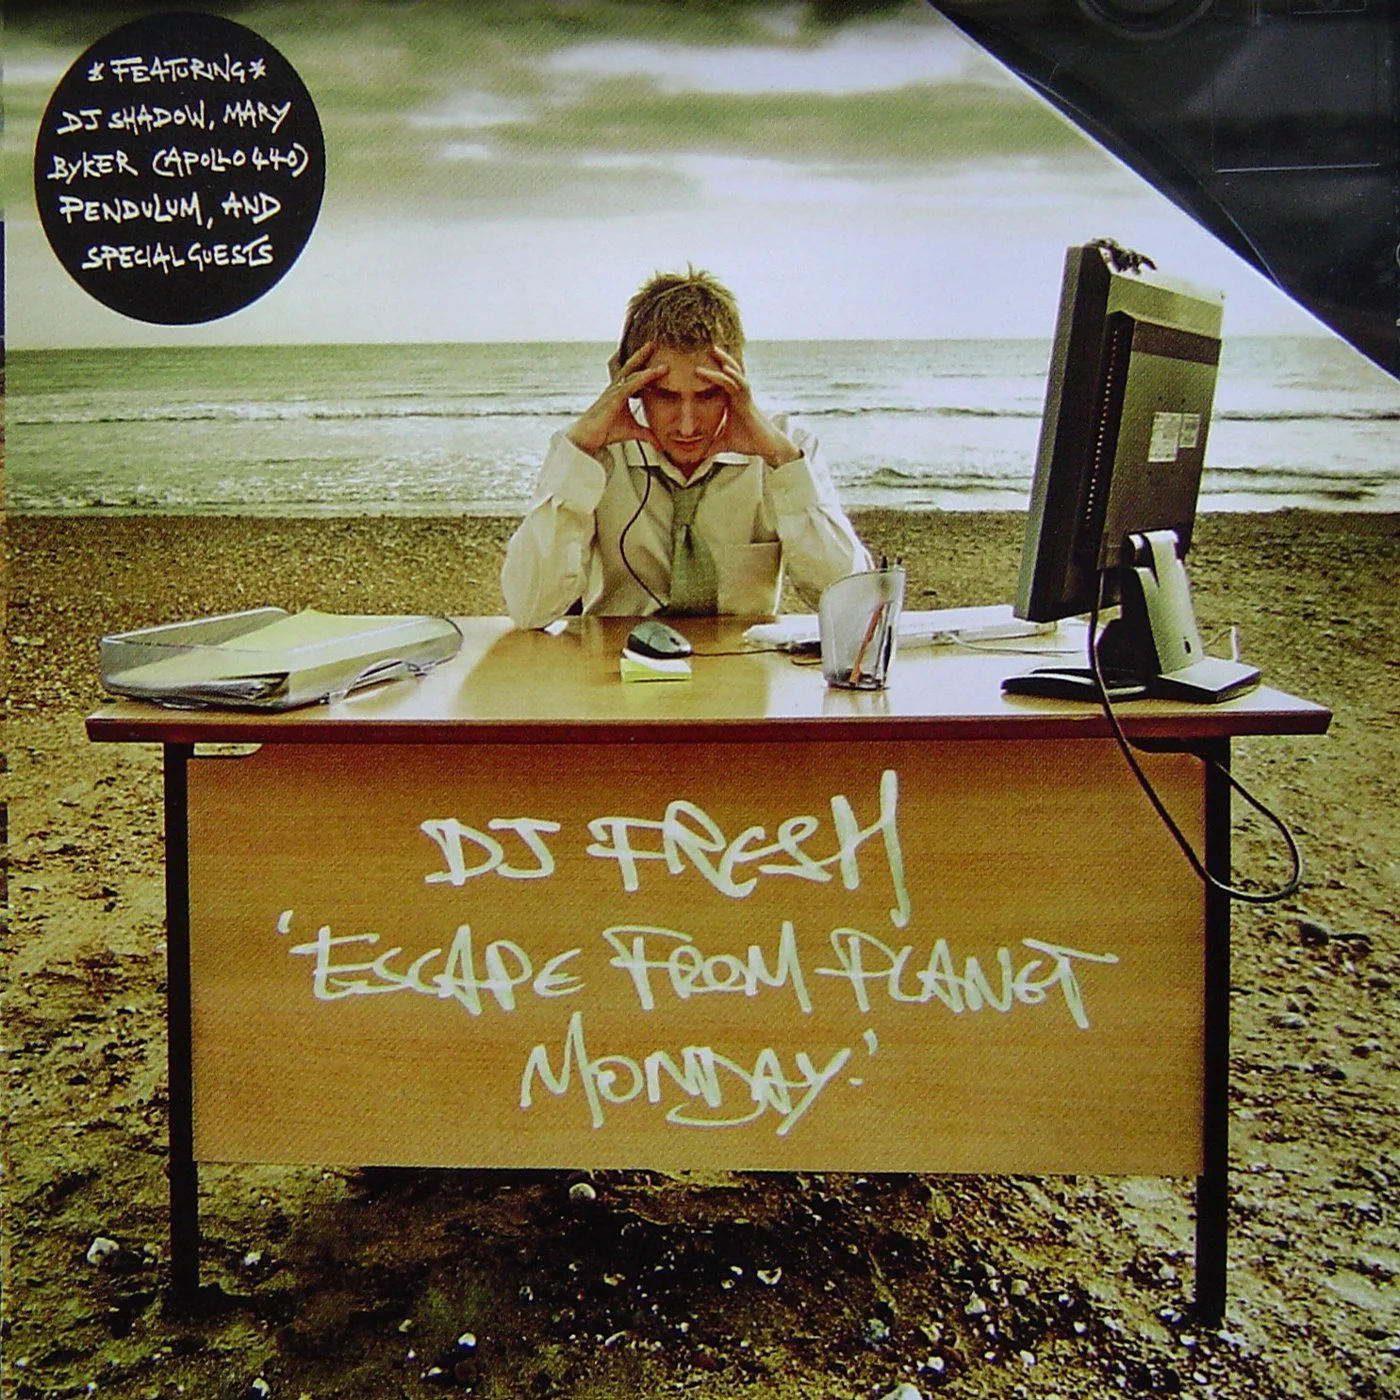 *FEATURING*
DJ SHADOW, MARY
BYKER (APOLLO 440)
PENDULUM, AND
SPECIAL GUESTS
DJ FRESH
'ESCAPE FROM PLANET
MONDAY.'